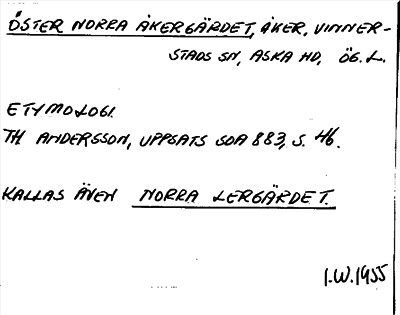 ÖSTER NORRA ÅKERGÄRDET, ÅKER, VINNER-
STADS SN, ASKA HD, ÖG. L.
ETYMOLOGI.
TH ANDERSSON, UPPSATS SOA 883, S. 46.
KALLAS ÄVEN NORRA LERGÄRDET.
I.W. 1955